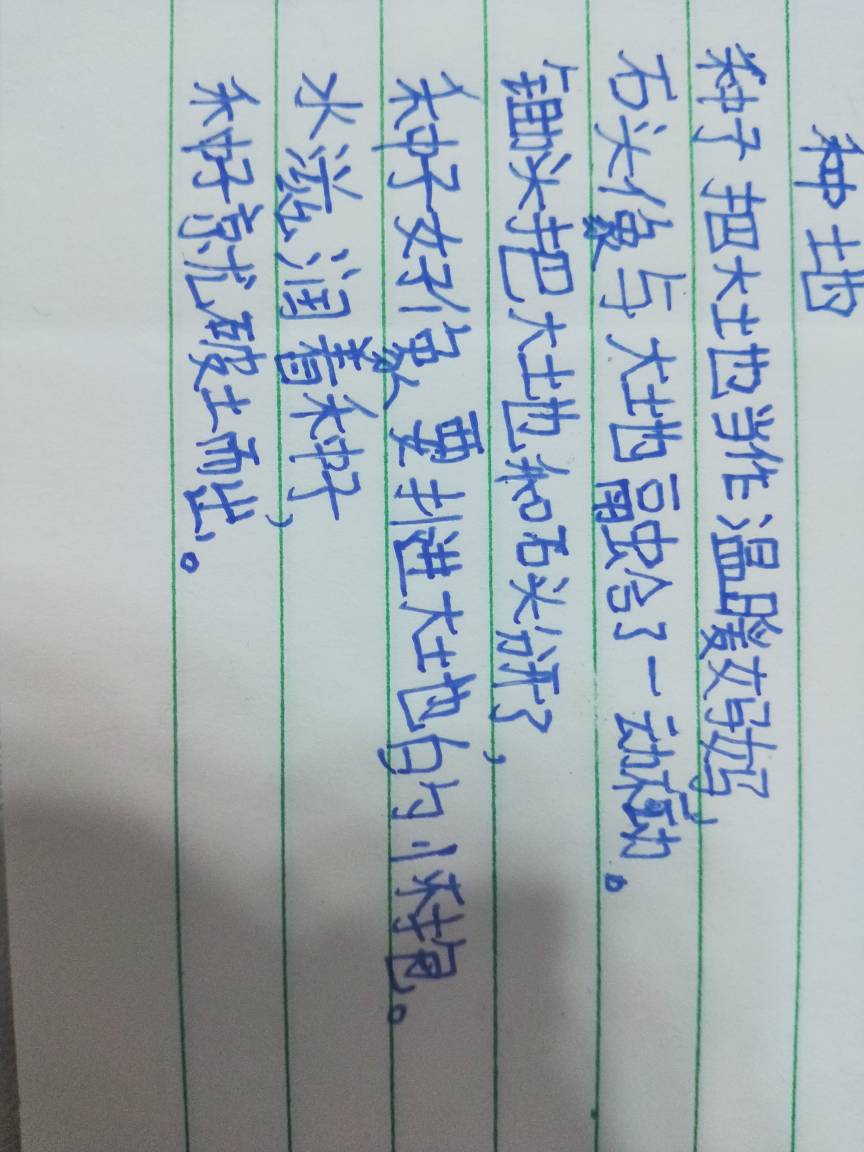 种地
种子把大地当作温暖妈妈，
石头像与大地融合了一动不动。
锄头把大地和石头分开了，
种子好像要扑进大地的小抱。
水滋润着种子，
种子就破土而出。